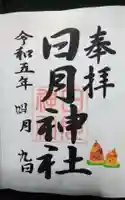 奉拝
日月神社
令和五年 四月 九日